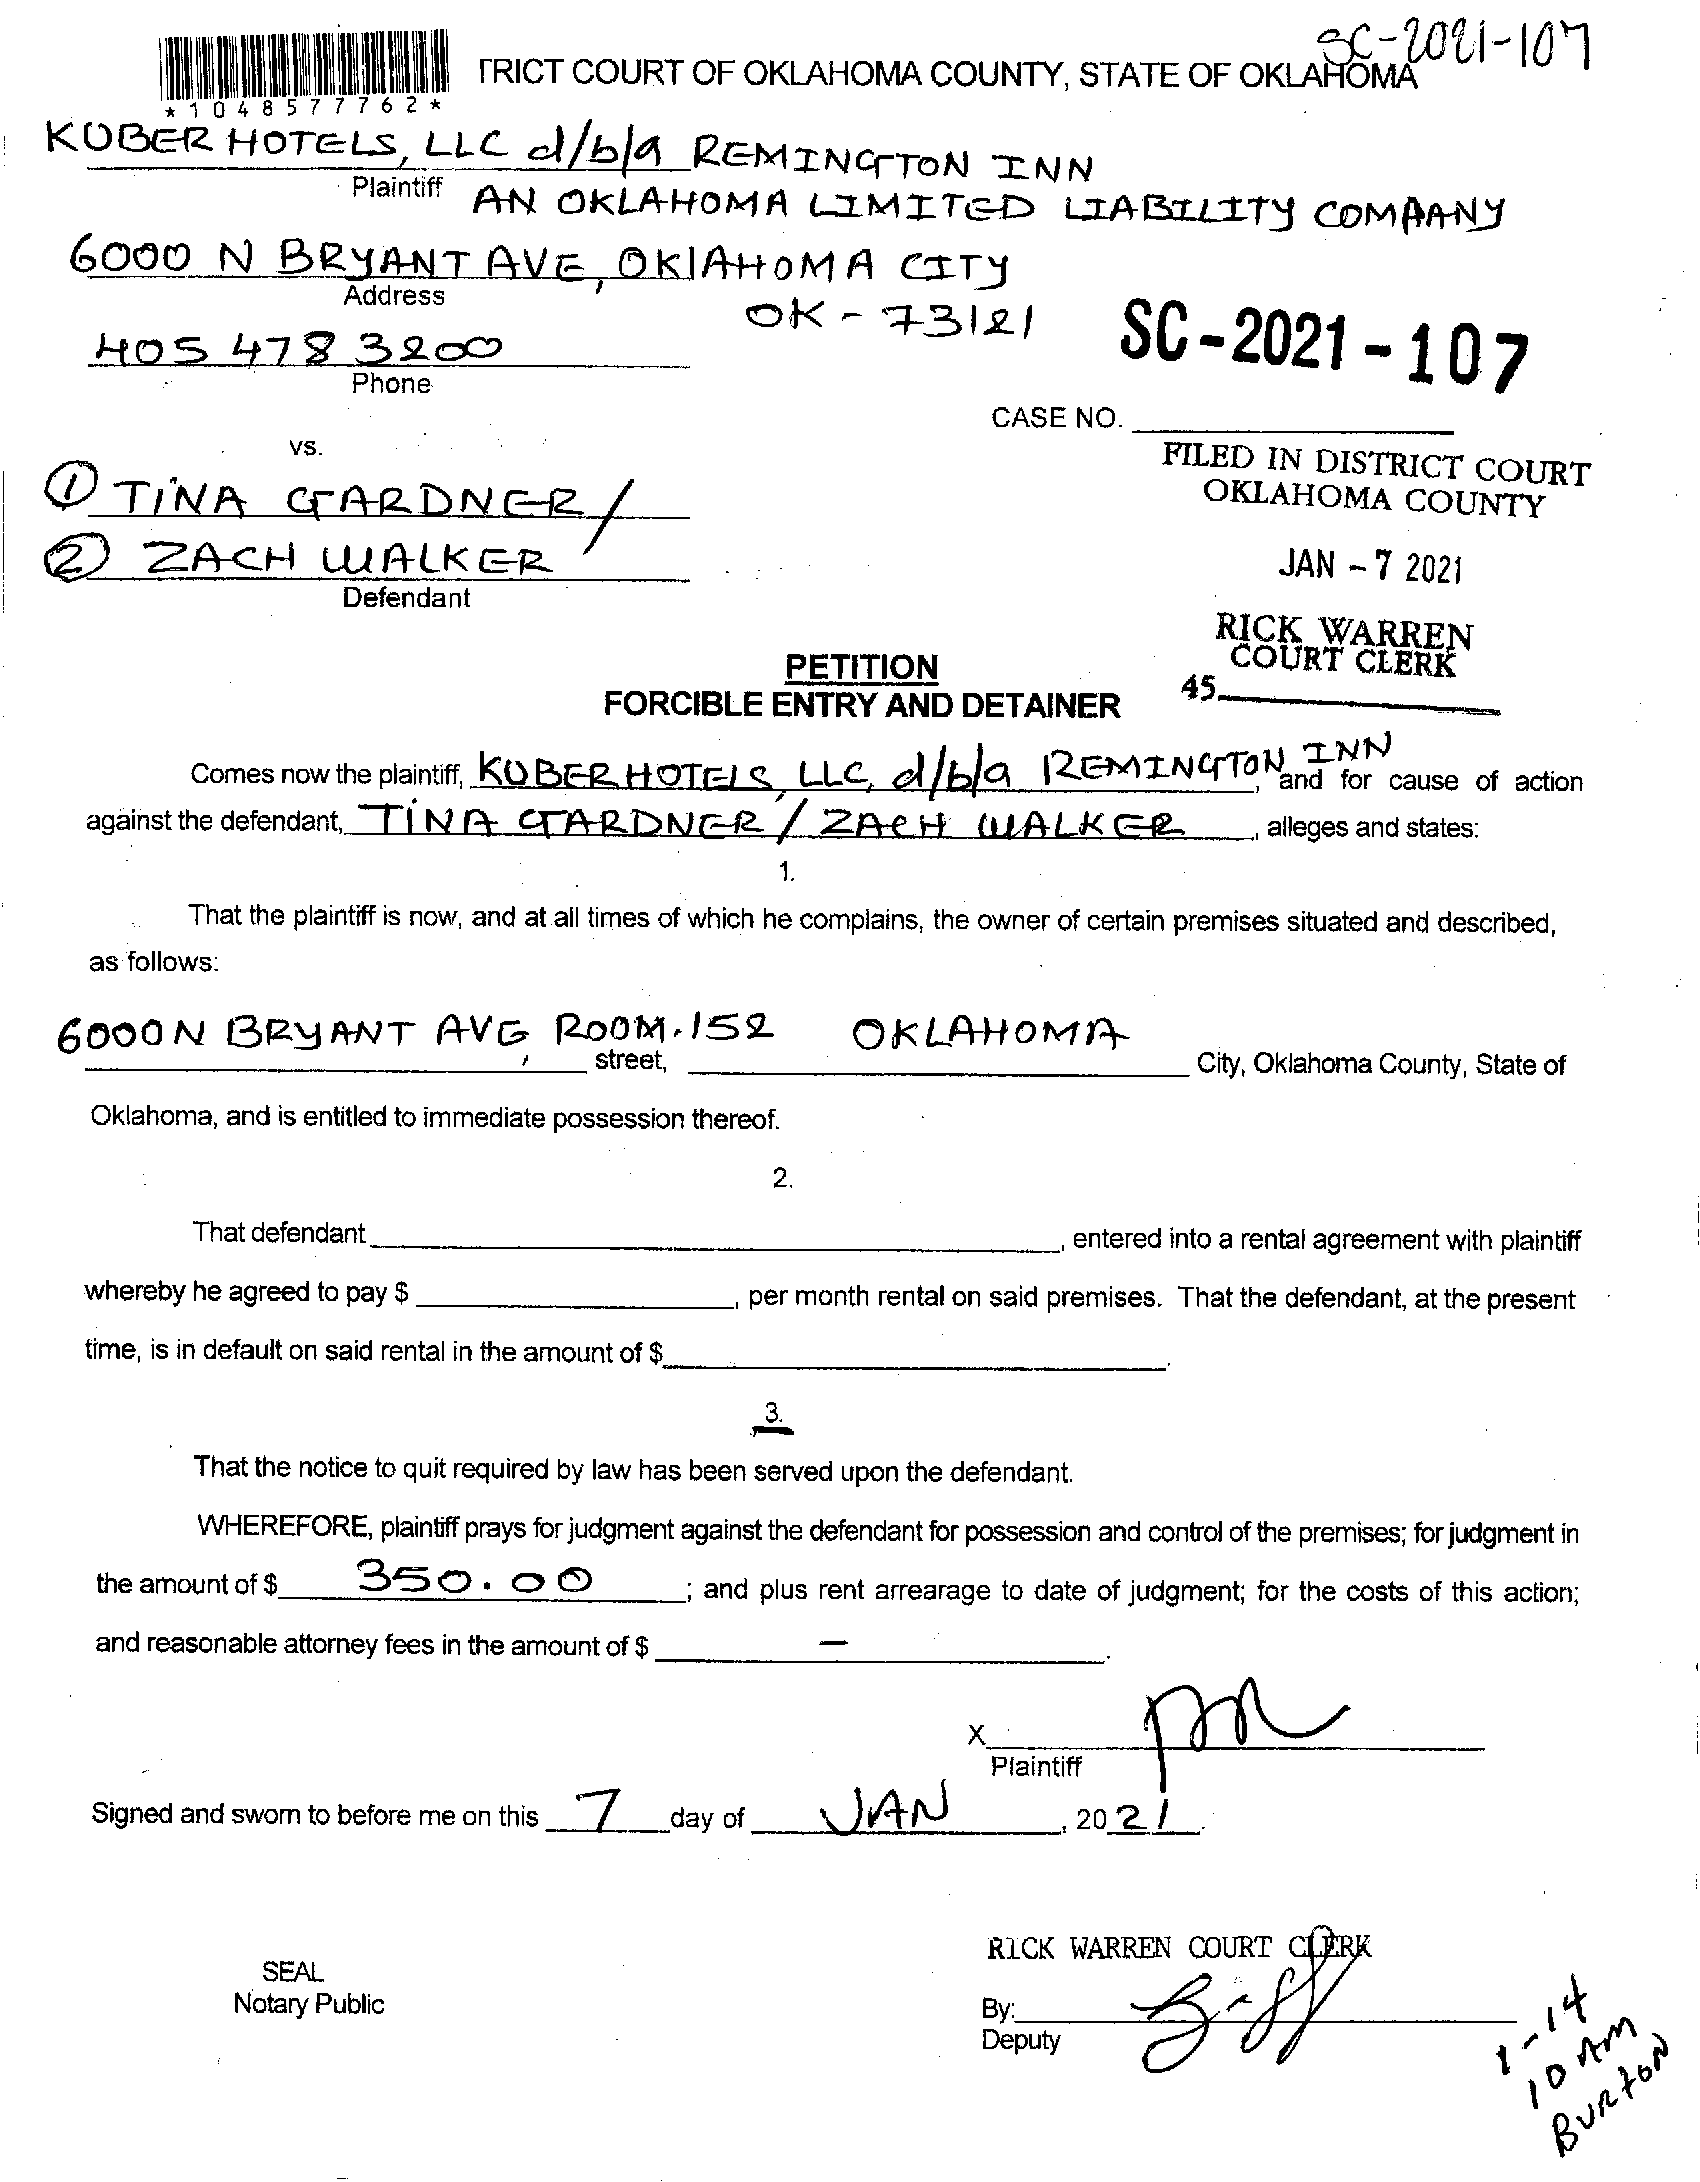 SC-2021-107
TRICT COURT OF OKLAHOMA COUNTY, STATE OF OKLAHOMA
*1048577762*
KUBER HOTELS, LLC d/b/a REMINGTON INN
Plaintiff
AN OKLAHOMA LIMITED LIABILITY COMPANY
6000 N BRYANT AVE, OKlAHOMA CITY
Address
OK - 73121
SC-2021-107
405 478 3200
Phone
CASE NO.
vs.
FILED IN DISTRICT COURT
OKLAHOMA COUNTY
① TINA GARDNER /
② ZACH WALKER
JAN - 7 2021
Defendant
RICK WARREN
COURT CLERK
45
PETITION
FORCIBLE ENTRY AND DETAINER
Comes now the plaintiff, KUBER HOTELS, LLC, d/b/a REMINGTON INN, and for cause of action
against the defendant, TINA GARDNER / ZACH WALKER, alleges and states:
1.
That the plaintiff is now, and at all times of which he complains, the owner of certain premises situated and described,
as follows:
6000 N BRYANT AVE, ROOM.152 OKLAHOMA
street, City, Oklahoma County, State of
Oklahoma, and is entitled to immediate possession thereof.
2.
That defendant , entered into a rental agreement with plaintiff
whereby he agreed to pay $ , per month rental on said premises. That the defendant, at the present
time, is in default on said rental in the amount of $ .
3.
That the notice to quit required by law has been served upon the defendant.
WHEREFORE, plaintiff prays for judgment against the defendant for possession and control of the premises; for judgment in
the amount of $ 350.00 ; and plus rent arrearage to date of judgment; for the costs of this action;
and reasonable attorney fees in the amount of $ — .
X
Plaintiff
Signed and sworn to before me on this 7 day of JAN , 2021.
RICK WARREN COURT CLERK
SEAL
Notary Public
By:
Deputy
1-14
10 AM
BURTON